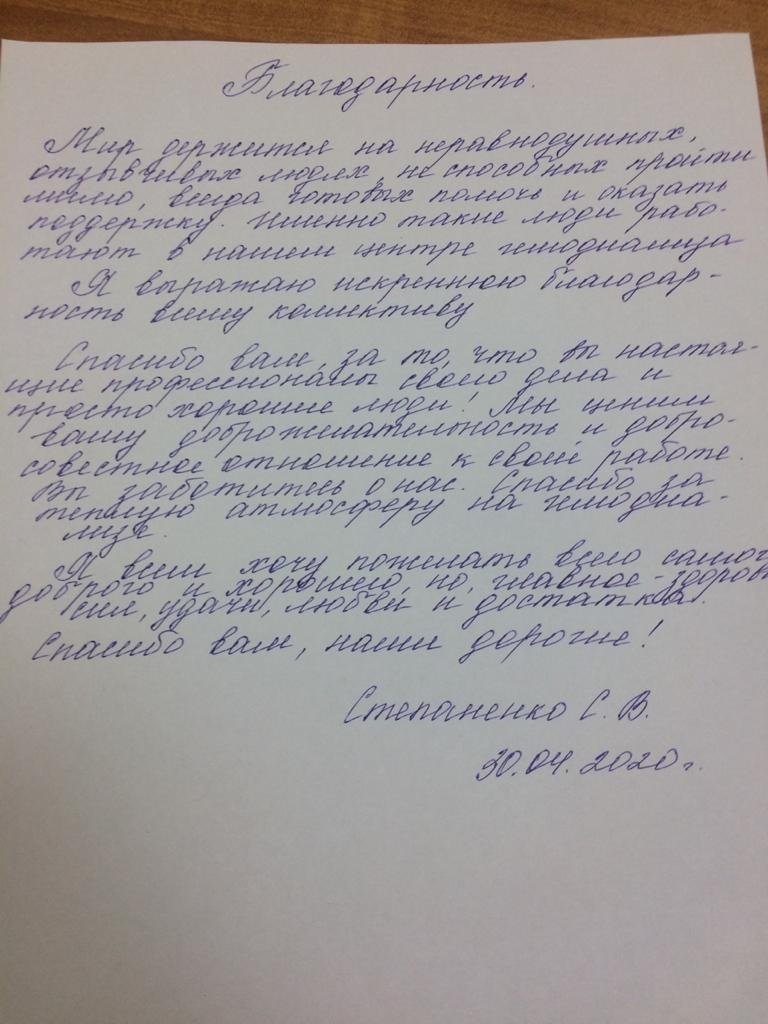 Благодарность.
Мир держится на неравнодушных,
отзывчивых людях, не способных пройти
мимо, всегда готовых помочь и оказать
поддержку. Именно такие люди рабо-
тают в нашем центре гемодиализа
Я выражаю искреннюю благодар-
ность всему коллективу
Спасибо вам, за то, что вы настоя-
щие профессионалы своего дела и
просто хорошие люди! Мы ценим
вашу доброжелательность и добро-
совестное отношение к своей работе.
Вы заботитесь о нас. Спасибо за
теплую атмосферу на гемодиа-
лизе.
Я всем хочу пожелать всего самого
доброго и хорошего, но, главное - здоров
сил, удачи, любви и достатка.
Спасибо вам, наши дорогие!
Степаненко С. В.
30.04.2020 г.